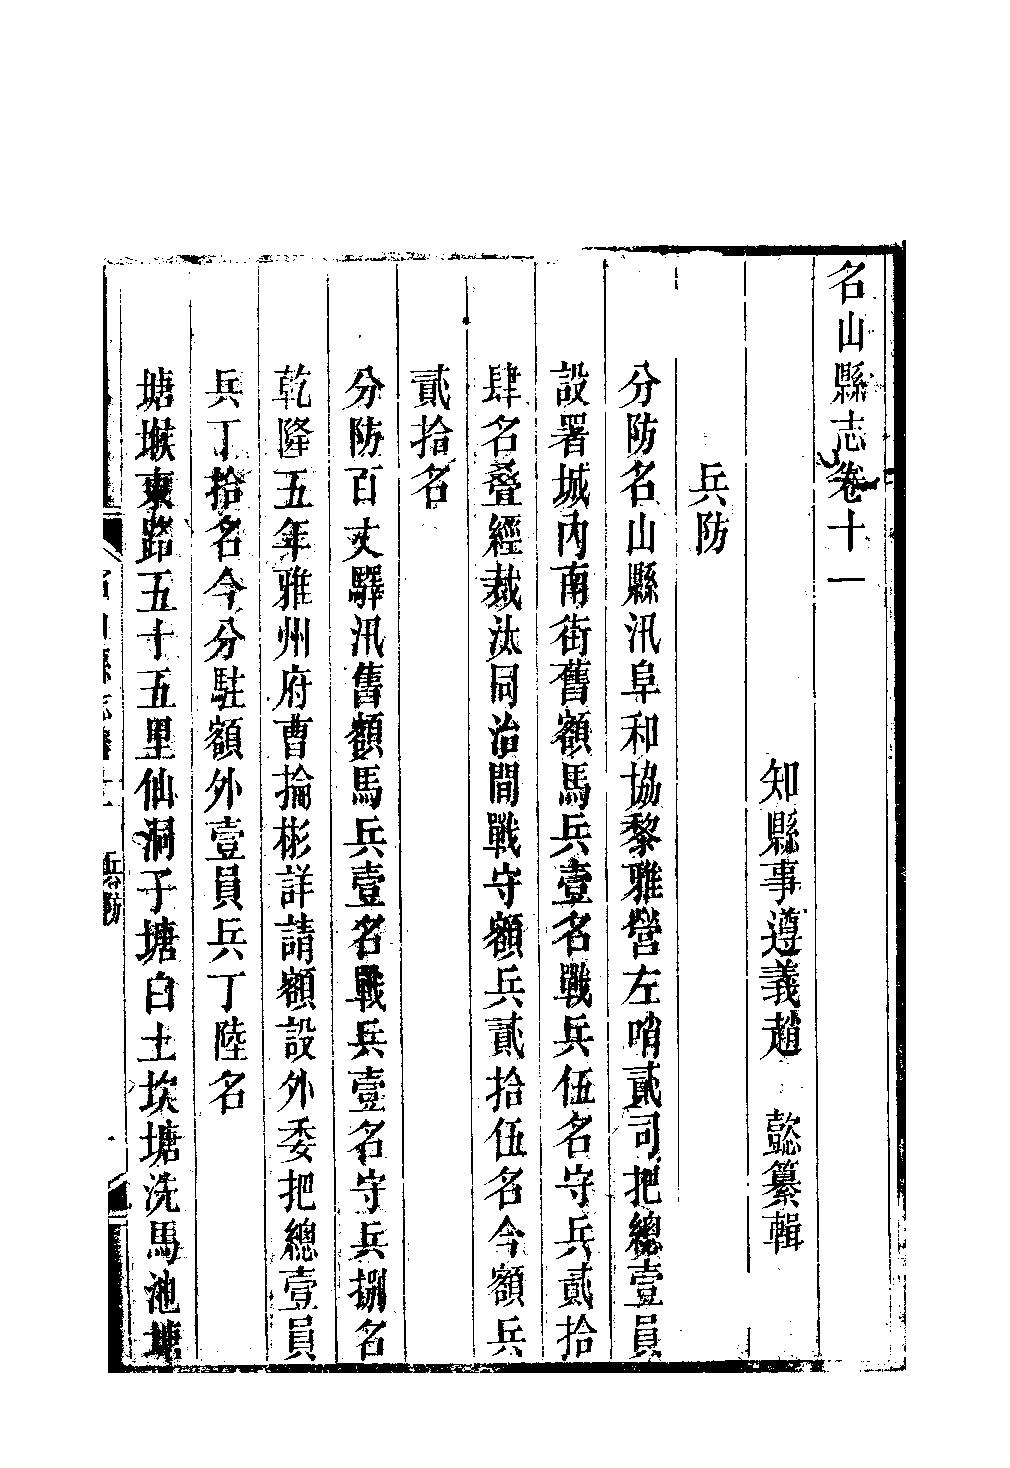 名山縣志卷十一
知縣事遵義趙 懿纂輯
兵防
分防名山縣汛阜和協黎雅營左哨貳司把總壹員
設署城內南街舊額馬兵壹名戰兵伍名守兵貳拾
肆名叠經裁汰同治間戰守額兵貳拾伍名今額兵
貳拾名
分防百丈驛汛舊額馬兵壹名戰兵壹名守兵捌名
乾隆五年雅州府曹掄彬詳請額設外委把總壹員
兵丁拾名今分駐額外壹員兵丁陸名
塘堠東路五十五里仙洞子塘白土坎塘洗馬池塘
名山縣志卷十一 兵防